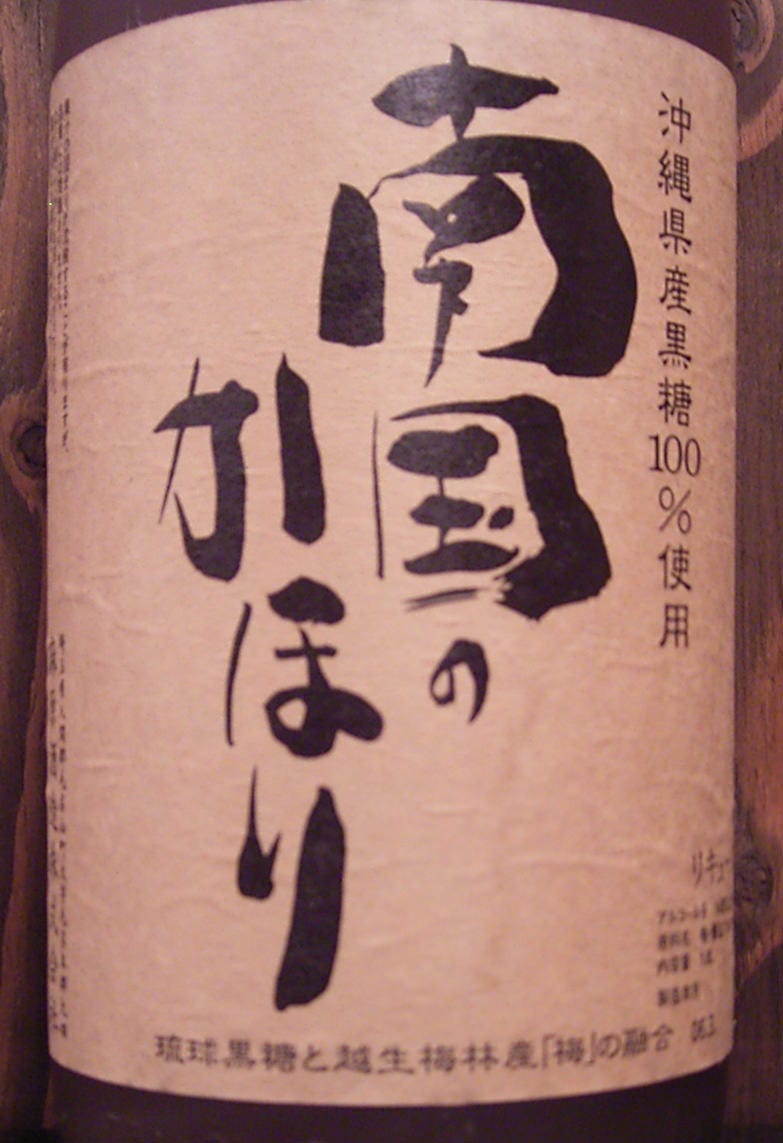 沖縄県産黒糖100%使用
南国の
かほり
リキュー
アルコール分
原料名
内容量
製造年月
琉球黒糖と越生梅林産「梅」の融合
06.3.